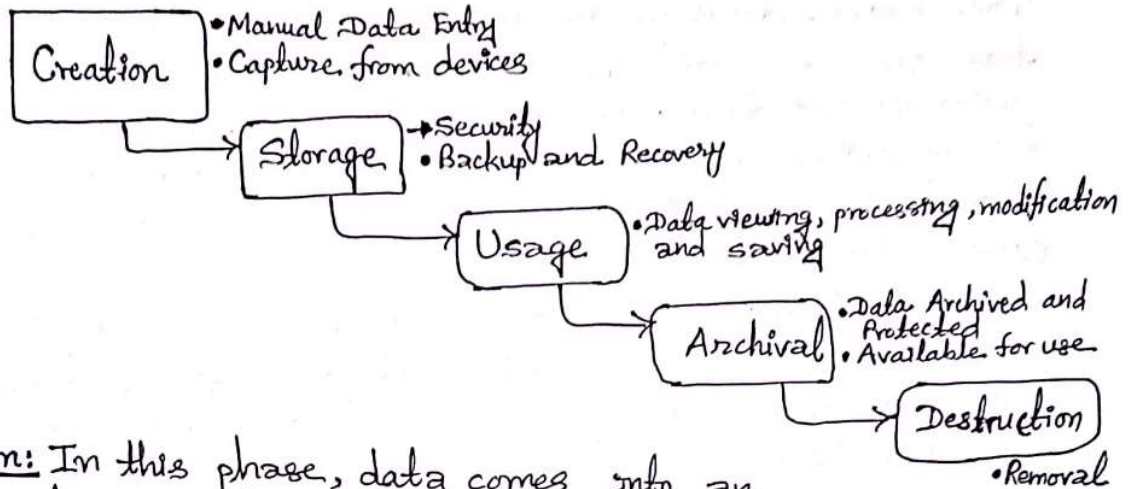 Creation
• Manual Data Entry
• Capture from devices
Storage
→ Security
• Backup and Recovery
Usage
• Data viewing, processing, modification
and saving
Archival
• Data Archived and
Protected
• Available for use
Destruction
• Removal
n: In this phase, data comes into an